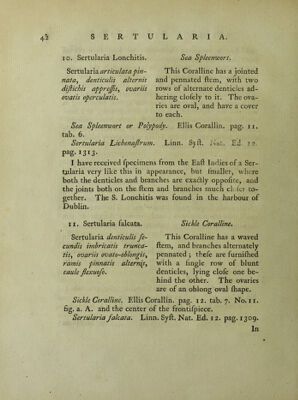 42 SERTULARIA.
10. Sertularia Lonchitis.
Sertularia articulata pin-
nata, denticulis alternis
distichis appressis, ovariis
ovatis operculatis.
Sea Spleenwort.
This Coralline has a jointed
and pennated stem, with two
rows of alternate denticles ad-
hering closely to it. The ova-
ries are oval, and have a cover
to each.
Sea Spleenwort or Polypody. Ellis Corallin. pag. 11.
tab. 6.
Sertularia Lichenastrum. Linn. Syst. Nat. Ed 12.
pag. 1313.
I have received specimens from the East Indies of a Ser-
tularia very like this in appearance, but smaller, where
both the denticles and branches are exactly opposite, and
the joints both on the stem and branches much closer to-
gether. The S. Lonchitis was found in the harbour of
Dublin.
11. Sertularia falcata.
Sertularia denticulis se-
cundis imbricatis trunca-
tis, ovariis ovato-oblongis,
ramis pinnatis alternis,
caule flexuoso.
Sickle Coralline.
This Coralline has a waved
stem, and branches alternately
pennated; these are furnished
with a single row of blunt
denticles, lying close one be-
hind the other. The ovaries
are of an oblong oval shape.
Sickle Coralline. Ellis Corallin. pag. 12. tab. 7. No. 11.
fig. a. A. and the center of the frontispiece.
Sertularia falcata. Linn. Syst. Nat. Ed. 12. pag. 1309.
In